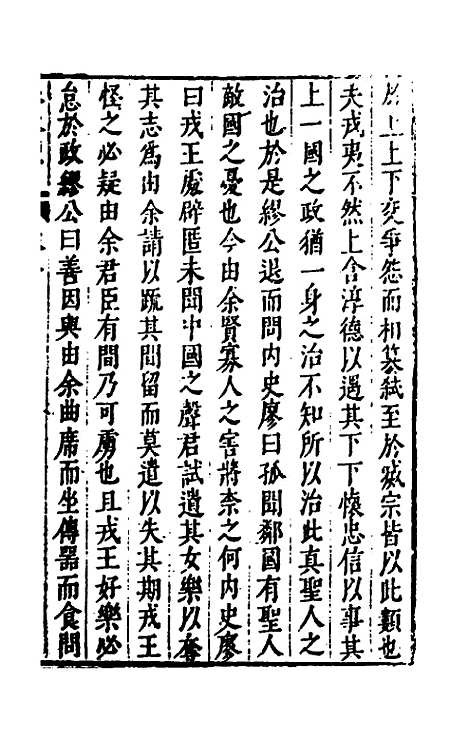 於上上下交爭怨而相篡弒至於滅宗皆以此類也
夫戎夷不然上含淳德以遇其下下懷忠信以事其
上一國之政猶一身之治不知所以治此真聖人之
治也於是繆公退而問內史廖曰孤聞鄰國有聖人
敵國之憂也今由余賢寡人之害將奈之何內史廖
曰戎王處辟匿未聞中國之聲君試遺其女樂以奪
其志為由余請以疏其間留而莫遣以失其期戎王
怪之必疑由余君臣有間乃可虜也且戎王好樂必
怠於政繆公曰善因與由余曲席而坐傳器而食問